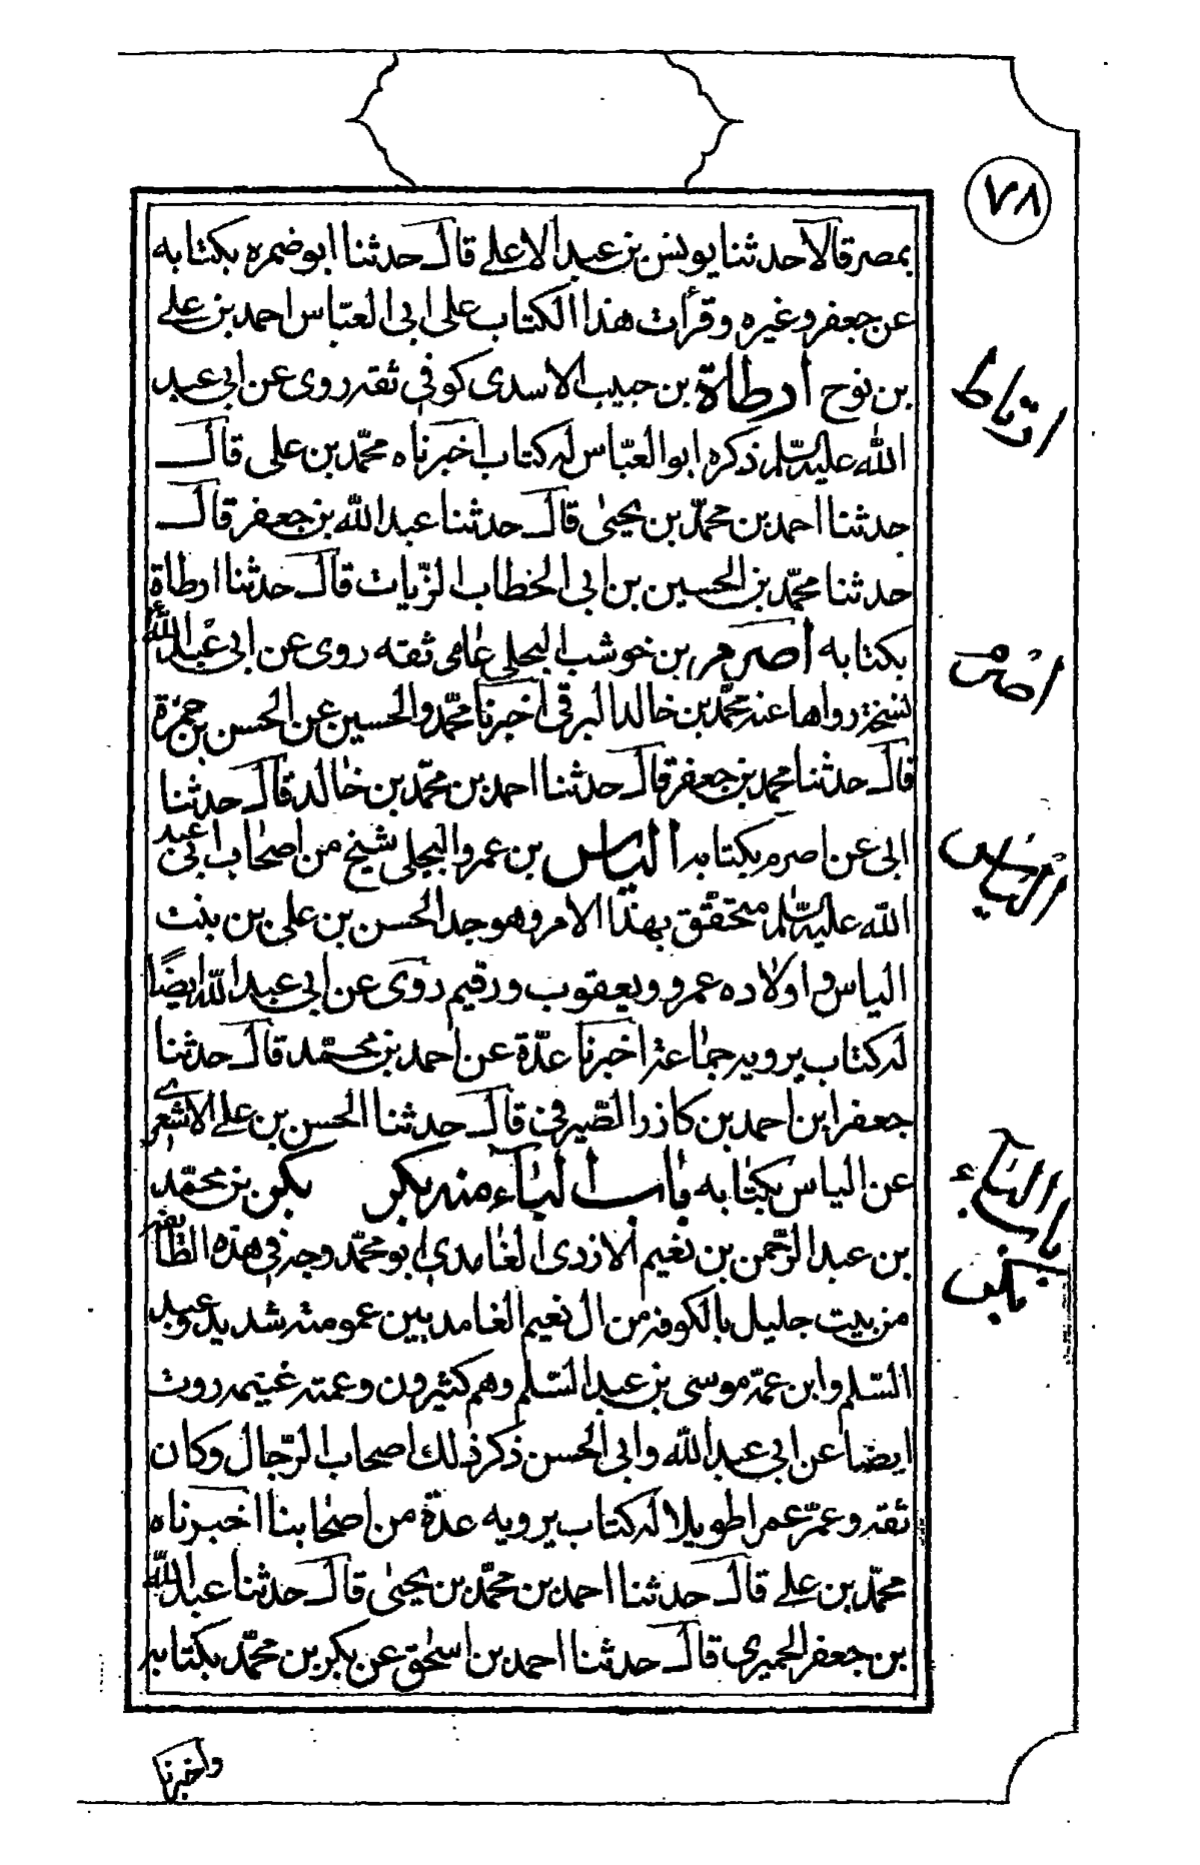 ٧٨
بمصر قالا حدثنا يونس بن عبد الاعلى قال حدثنا ابو ضمره بكتابه
عن جعفر وغيره وقرأت هذا الكتاب على ابى العبّاس احمد بن على
بن نوح ارطاة بن حبيب الاسدى كوفى ثقه روى عن ابى عبد
الله عليه السّلم ذكره ابو العبّاس له كتاب اخبرناه محمّد بن على قال
حدثنا احمد بن محمّد بن يحيىٰ قال حدثنا عبد الله بن جعفر قال
حدثنا محمّد بن الحسين بن ابى الخطاب الزّيات قال حدثنا ارطاة
بكتابه اصرم بن خوشب البجلى عامى ثقه روى عن ابى عبد الله ع
نسخة رواها عنه محمّد بن خالد البرقى اخبرنا محمّد والحسين عن الحسن بن حمزة
قال حدثنا محمد بن جعفر قال حدثنا احمد بن محمّد بن خالد قال حدثنا
ابى عن اصرم بكتابه الياس بن عمرو البجلى شيخ من اصحاب ابى عبد
الله عليه السّلم متحقّق بهذا الامر وهو جد الحسن بن على بن بنت
الياس واولاده عمرو ويعقوب ورقيم روى عن ابى عبد الله ايضًا
له كتاب يرويه جماعة اخبرنا عدّة عن احمد بن محمّد قال حدثنا
جعفر ابن احمد بن كاذر الصّيرفى قال حدثنا الحسن بن على الاشعرى
عن الياس بكتابه باب الباء منه بكر بكر بن محمّد
بن عبد الرّحمن بن نعيم الازدى الغامدى ابو محمّد وجه فى هذه الطّائفه
من بيت جليل بالكوفه من ال نعيم الغامديين عمومته شديد وعبد
السّلم وابن عمّه موسى بن عبد السّلم وهم كثيرون وعمته غنيمه روت
ايضا عن ابى عبد الله وابى الحسن ذكر ذلك اصحاب الرّجال وكان
ثقه وعمّر عمرا طويلا له كتاب يرويه عدّة من اصحابنا اخبرناه
محمّد بن على قال حدثنا احمد بن محمّد بن يحيىٰ قال حدثنا عبد الله
بن جعفر الحميرى قال حدثنا احمد بن اسحٰق عن بكر بن محمّد بكتابه
واخبرنا
ارطاة
اصرم
الياس
باب الباء
بكر